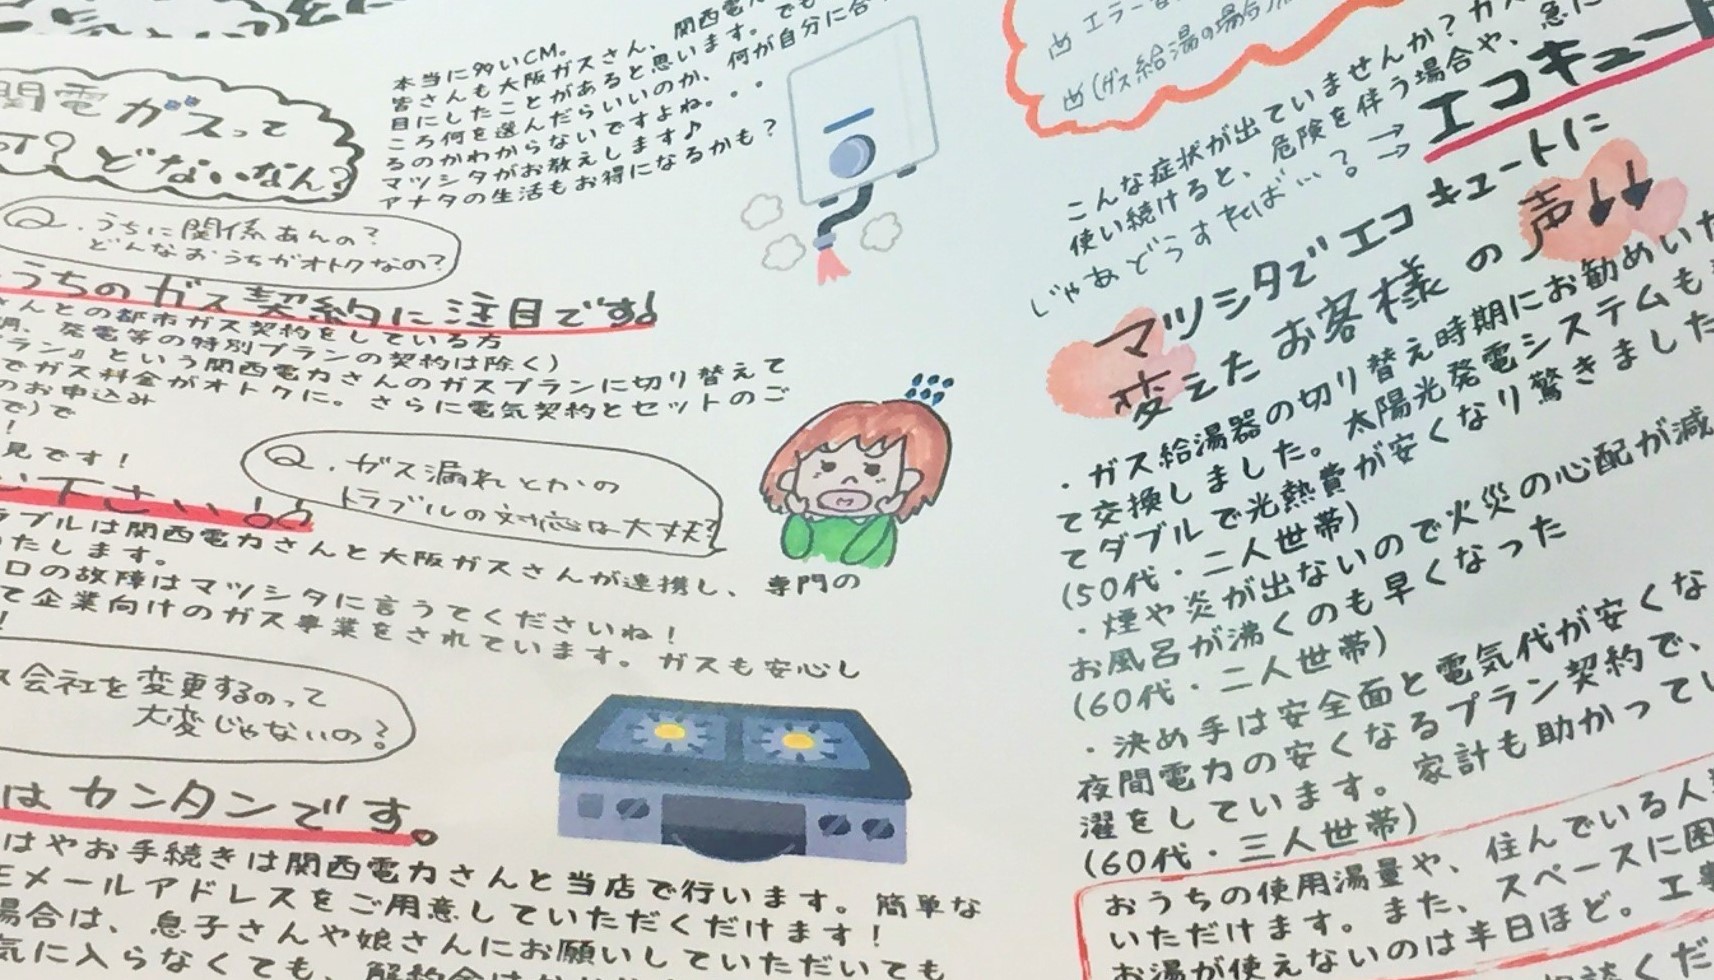 関電ガスって
どないなん?
本当に多いCM。
皆さんも大阪ガスさん、関西電力
目にしたことがあると思います。でも
ころ何を選んだらいいのか、何が自分に合
るのかわからないですよね。・・
マツシタがお教えします♪
アナタの生活もお得になるかも?
Q.うちに関係あんの?
どんなおうちがオトクなの?
うちのガス契約に注目です!
さんとの都市ガス契約をしている方
、発電等の特別プランの契約は除く)
プラン』という関西電力さんのガスプランに切り替えて
でガス料金がオトクに。さらに電気契約とセットのご
のお申込み
で)で
!
見です!
下さい!!
Q.ガス漏れとかの
トラブルの対応は大丈夫?
ラブルは関西電力さんと大阪ガスさんが連携し、専門の
たします。
口の故障はマツシタに言うてくださいね!
て企業向けのガス事業をされています。ガスも安心し
!
ス会社を変更するのって
大変じゃないの?
はカンタンです。
はやお手続きは関西電力さんと当店で行います。簡単な
Eメールアドレスをご用意していただくだけます!
場合は、息子さんや娘さんにお願いしていただいても
気に入らなくても、解約金は
凸 エラー
凸(ガス給湯の場合)
こんな症状が出ていませんか?ガス
使い続けると、危険を伴う場合や、急に
じゃあどうすれば…?→→エコキュート
マツシタでエコキュートに
変えたお客様の声↓↓
・ガス給湯器の切り替え時期にお勧めいた
て交換しました。太陽光発電システムも
てダブルで光熱費が安くなり驚きました
(50代・二人世帯)
・煙や炎が出ないので火災の心配が減
お風呂が沸くのも早くなった
(60代・二人世帯)
・決め手は安全面と電気代が安くな
夜間電力の安くなるプラン契約で、
濯をしています。家計も助かってい
(60代・三人世帯)
おうちの使用湯量や、住んでいる人
いただけます。また、スペースに困
お湯が使えないのは半日ほど。工事
談くだ